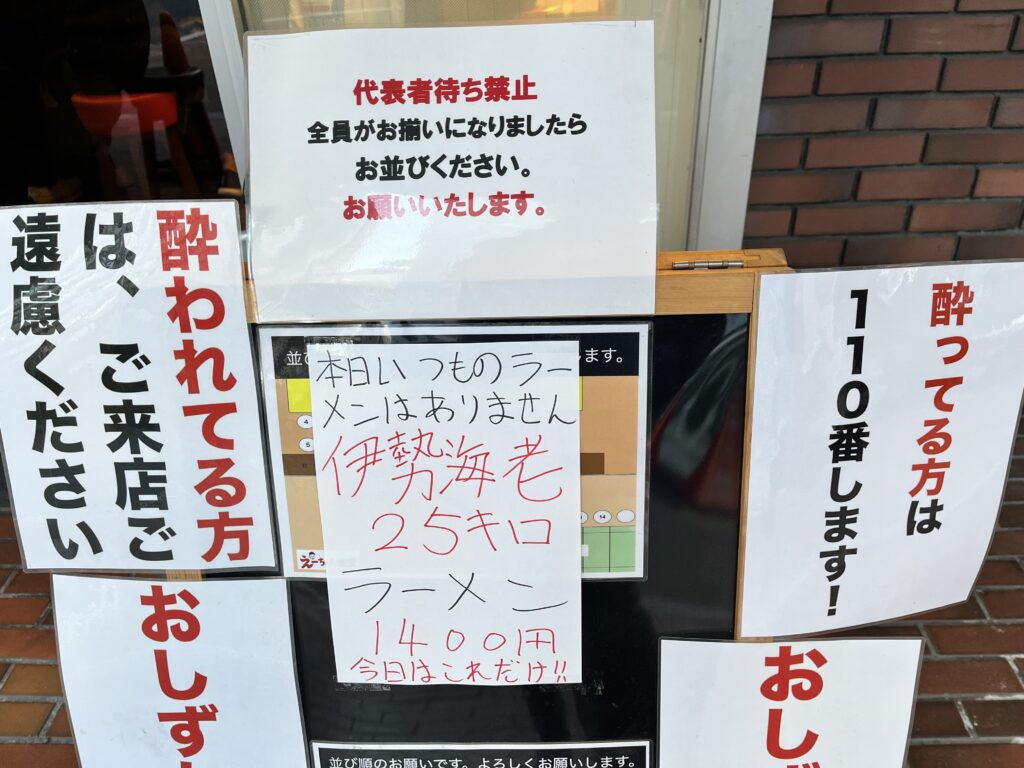 代表者待ち禁止
全員がお揃いになりましたら
お並びください。
お願いいたします。
酔われてる方
は、ご来店ご
遠慮ください
酔ってる方は
110番します!
並び
します。
本日いつものラー
メンはありません
伊勢海老
25キロ
ラーメン
1400円
今日はこれだけ!!
4
5
14
えーち
おしず
おし
並び順のお願いです。よろしくお願いします。